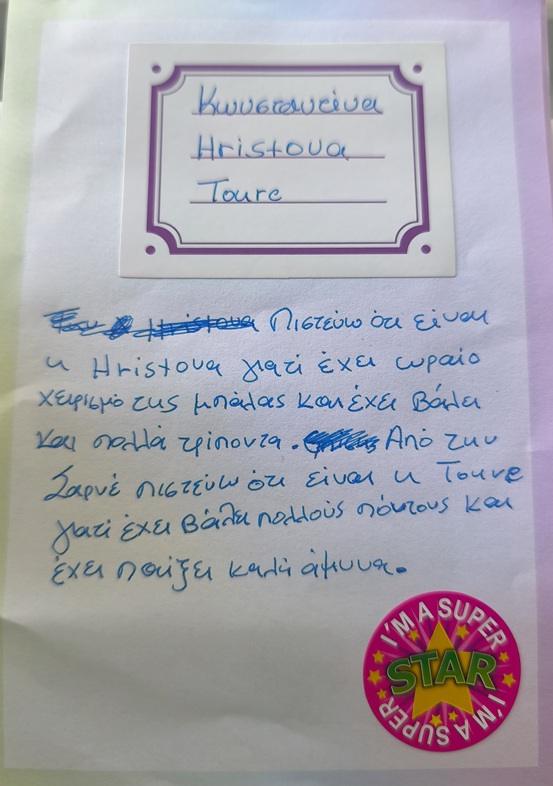 Κωνσταντίνα
Hristova
Toure
Hristova Πιστεύω ότι είναι
η Hristova γιατί έχει ωραίο
χειρισμό της μπάλας και έχει βάλει
και πολλά τρίποντα. Από την
Σαρνέ πιστεύω ότι είναι η Toure
γιατί έχει βάλει πολλούς πόντους και
έχει παίξει καλή άμυνα.
I'M A SUPER
STAR
I'M A SUPER